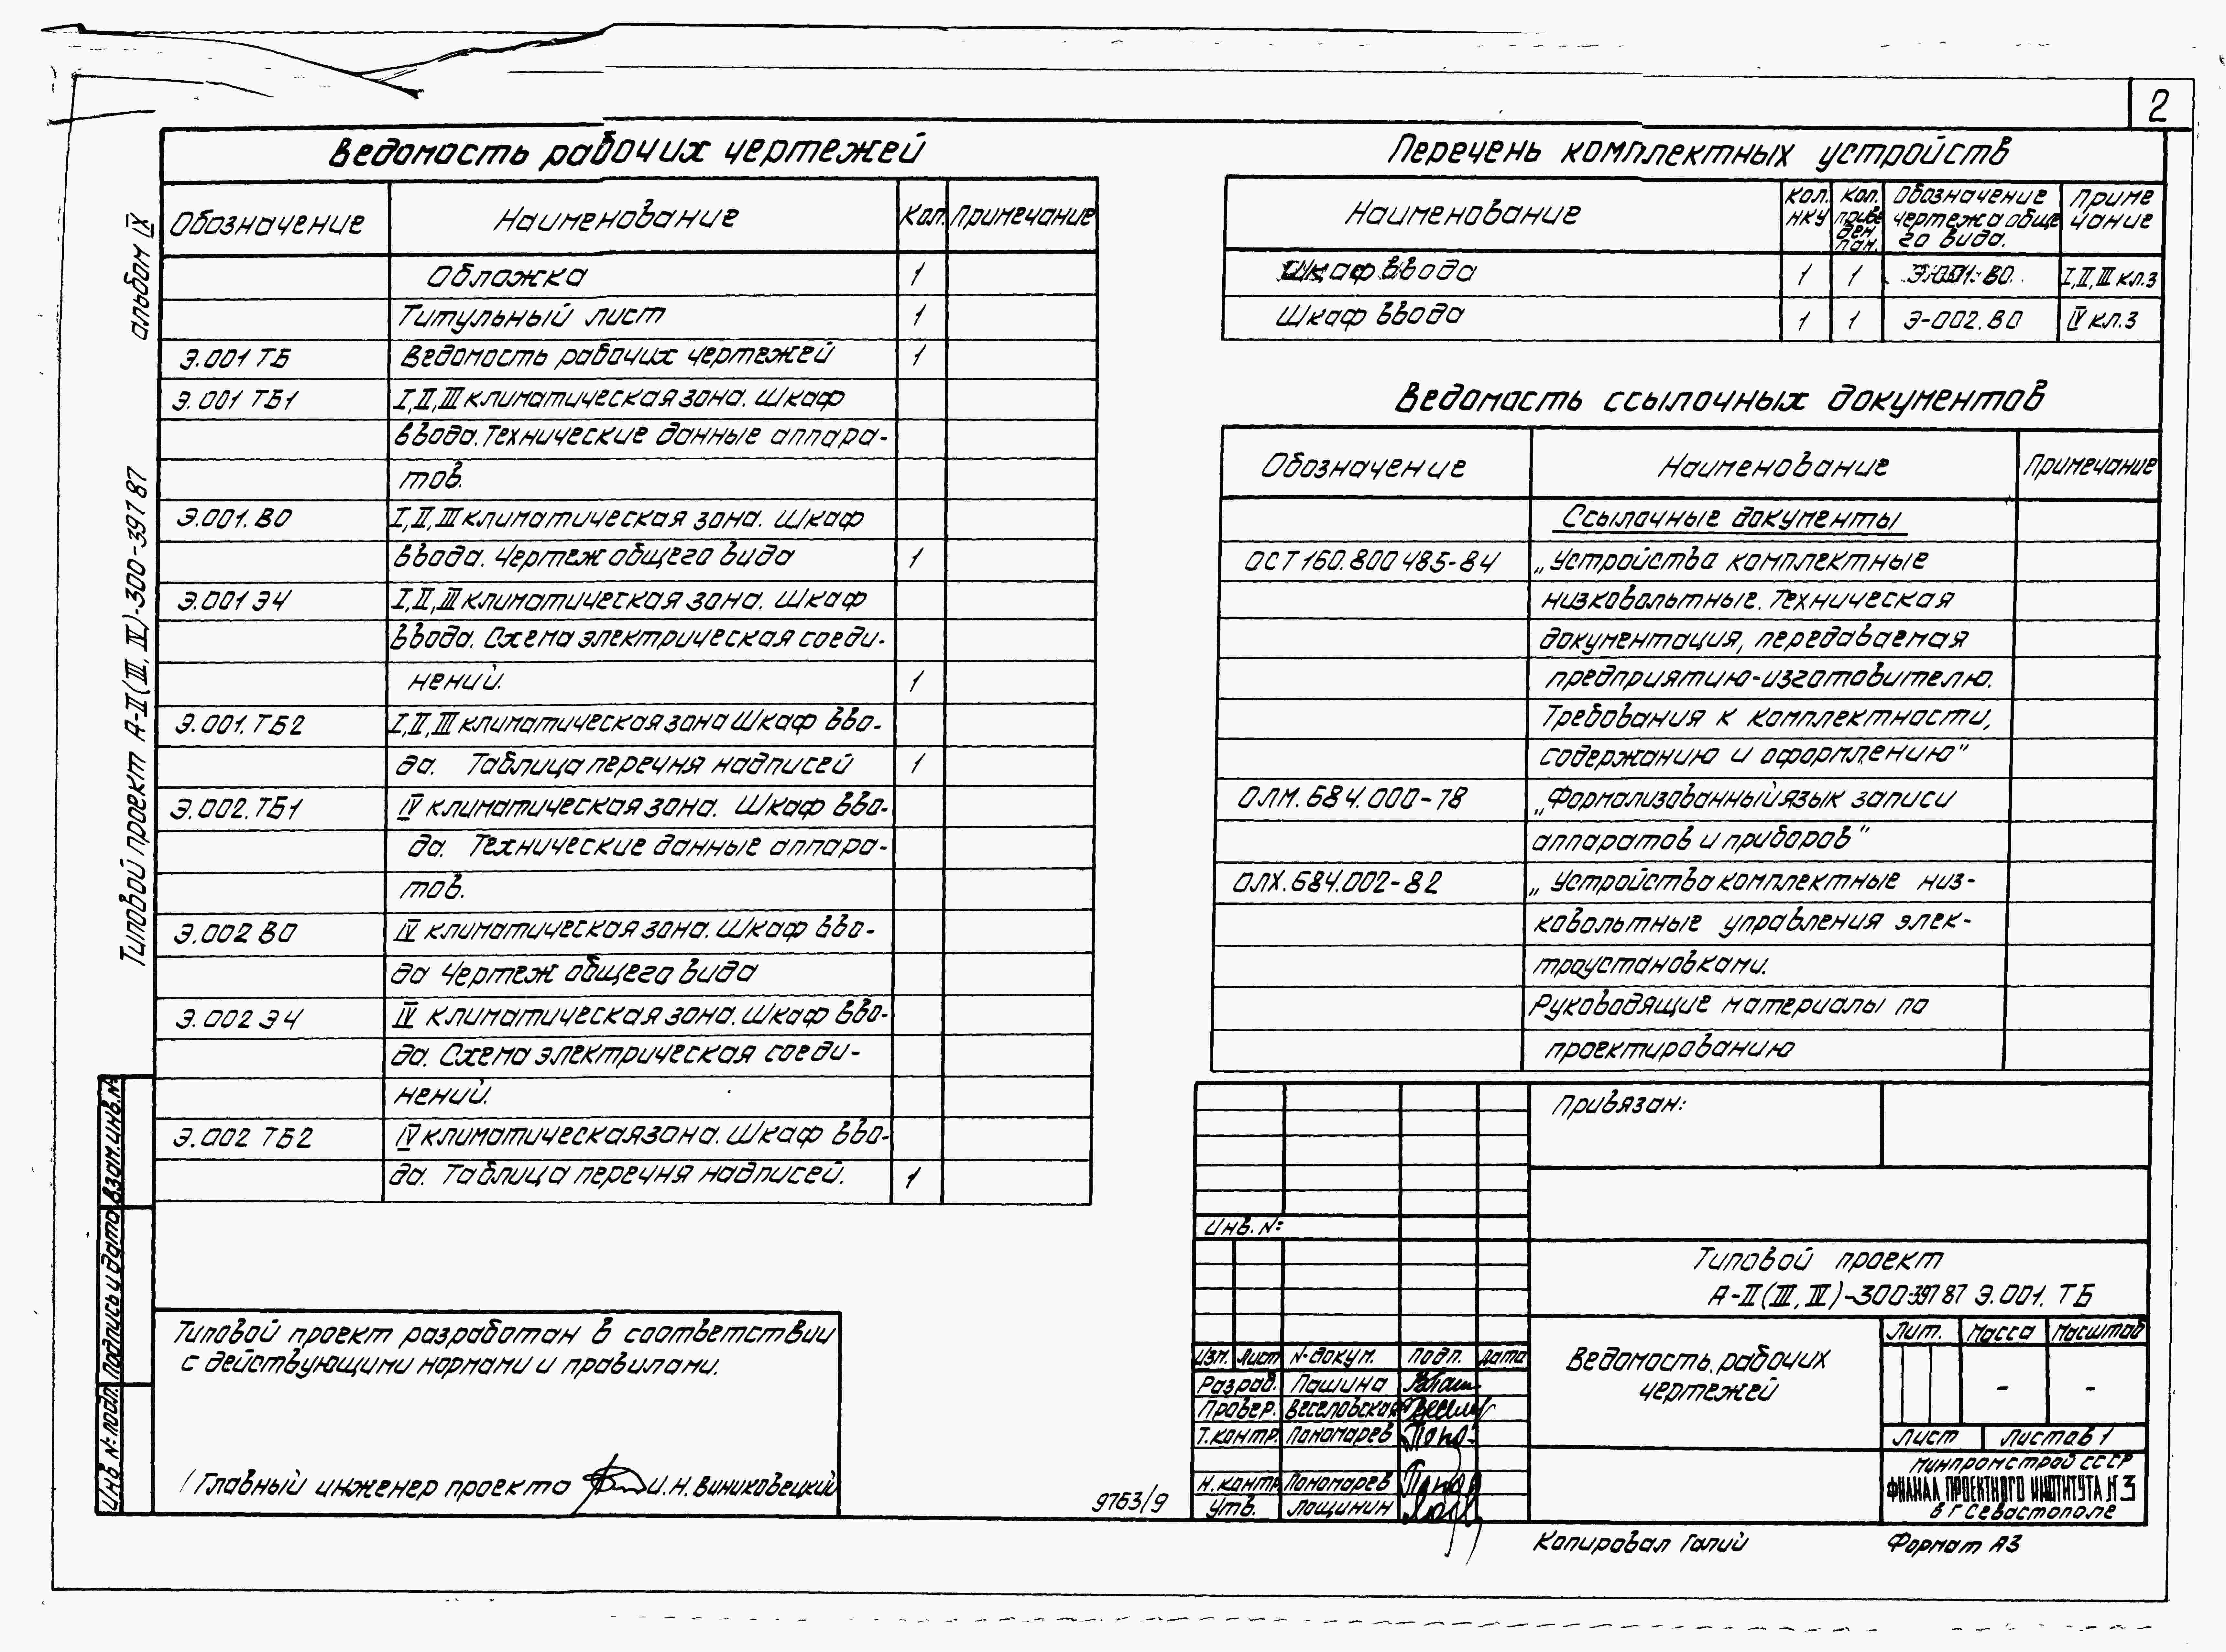 2
Ведомость рабочих чертежей
Обозначение Наименование Кол. Примечание
Обложка 1
Титульный лист 1
Э.001 ТБ Ведомость рабочих чертежей 1
Э.001 ТБ1 I, II, III климатическая зона. Шкаф
ввода. Технические данные аппара-
тов.
Э.001. ВО I, II, III климатическая зона. Шкаф
ввода. Чертеж общего вида 1
Э.001 Э4 I, II, III климатическая зона. Шкаф
ввода. Схема электрическая соеди-
нений. 1
Э.001. ТБ2 I, II, III климатическая зона Шкаф вво-
да. Таблица перечня надписей 1
Э.002. ТБ1 IV климатическая зона. Шкаф вво-
да. Технические данные аппара-
тов.
Э.002 ВО IV климатическая зона. Шкаф вво-
да Чертеж общего вида
Э.002 Э4 IV климатическая зона. Шкаф вво-
да. Схема электрическая соеди-
нений.
Э.002 ТБ2 IV климатическая зона. Шкаф вво-
да. Таблица перечня надписей. 1
Перечень комплектных устройств
Наименование Кол. НКУ Кол. приведен. пан. Обозначение чертежа общего вида. Примечание
Шкаф ввода 1 1 Э-001. ВО I, II, III кл.з
Шкаф ввода 1 1 Э-002. ВО IV кл.з
Ведомость ссылочных документов
Обозначение Наименование Примечание
Ссылочные документы
ОСТ 160.800 485-84 „Устройства комплектные
низковольтные. Техническая
документация, передаваемая
предприятию-изготовителю.
Требования к комплектности,
содержанию и оформлению"
ОЛМ. 684.000-78 „Формализованный язык записи
аппаратов и приборов"
ОЛХ. 684.002-82 „Устройства комплектные низ-
ковольтные управления элек-
троустановками.
Руководящие материалы по
проектированию
альбом IX
Типовой проект А-II (III, IV)-300-397 87
Взам. инв. №
Подпись и дата
Инв № подл.
Типовой проект разработан в соответствии
с действующими нормами и правилами.
Главный инженер проекта И. Н. Виниковецкий
9763/9
Привязан:
Инв. №:
Типовой проект
А-II (III, IV)-300-397 87 Э.001. ТБ
Изм. Лист № докум. Подп. Дата
Разраб. Пашина
Провер. Веселовская
Т. контр. Пономарев
Н. контр Пономарев
Утв. Лощинин
Ведомость рабочих
чертежей
Лит. Масса Масштаб
- -
Лист Листов 1
Минпромстрой СССР
ФИЛИАЛ ПРОЕКТНОГО ИНСТИТУТА № 3
в г Севастополе
Копировал Галий Формат А3